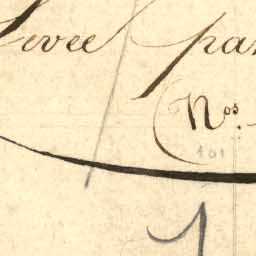 Levée par
(Nos.
101